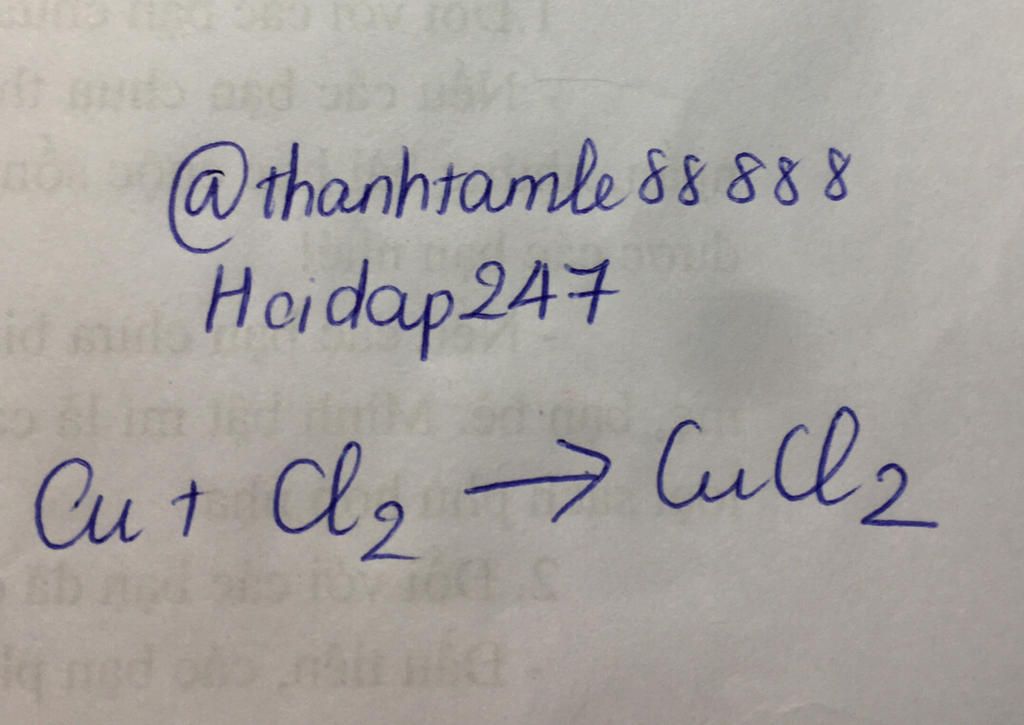 @thanhtamle88888
Hoidap247
Cu + Cl₂ → CuCl₂